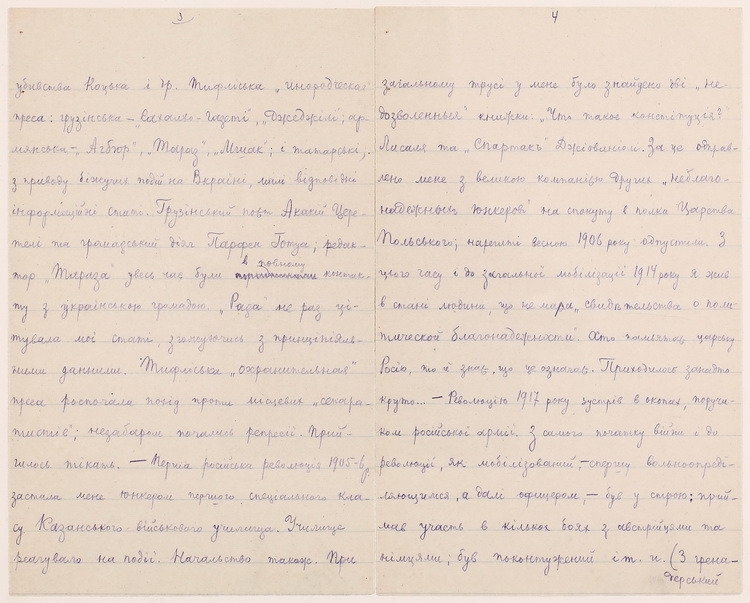 3
убивства Коцька і др. Тифліська „инородческая"
преса: грузінська – „вахалмо-газеті", „Джеджілі"; ар-
мянська – „Ачбюр", „Тараз", „Мшак"; і татарські,
з приводу біжучих подій на Вкраїні, мали відповідні
інформаційні статі. Грузінський поет Акакій Цере-
телі та громадський діяч Парфен Готуа; редак-
тор „Тараза" увесь час були в повному контак-
ту з українською громадою. „Рада" не раз ці-
тувала мої статі, згожуючись з принціпіяль-
ними данними. Тифліська „охранительная"
преса роспочала похід проти місцевих „сепара-
тистів"; незабаром почались репресії. Прий-
шлось тікать. – Перша російська революція 1905-6 р.
застала мене юнкером першого спеціального кла-
су Казанського військового училища. Училище
реагувало на події. Начальство також. При
4
загальному трусі у мене було знайдено дві „не
дозволенныя" книжки: „Что такое конституція?"
Лассаля та „Спартакъ" Джіованіолі. За це одправ-
лено мене з великою компанією других „неблаго-
надежныхъ юнкеровъ" на спокуту в полки Царства
Польського; нарешті весною 1906 року одпустили. З
цього часу і до загальної мобілізації 1914 року я жив
в стані людини, що не мала „свидѣтельства о поли-
тической благонадежности". Хто памъятає царську
Росію, то й знає, що це означає. Приходилось занадто
круто... – Революцію 1917 року зустрів в окопах, поручи-
ком російської армії. З самого початку війни і до
революції, як мобілізований, – спершу вольноопредѣ-
ляющимся, а далі офицером, – був у строю; прий-
мав участь в кількох боях з австрійцями та
німцями; був поконтужений і т. и. (З грена-
дерський